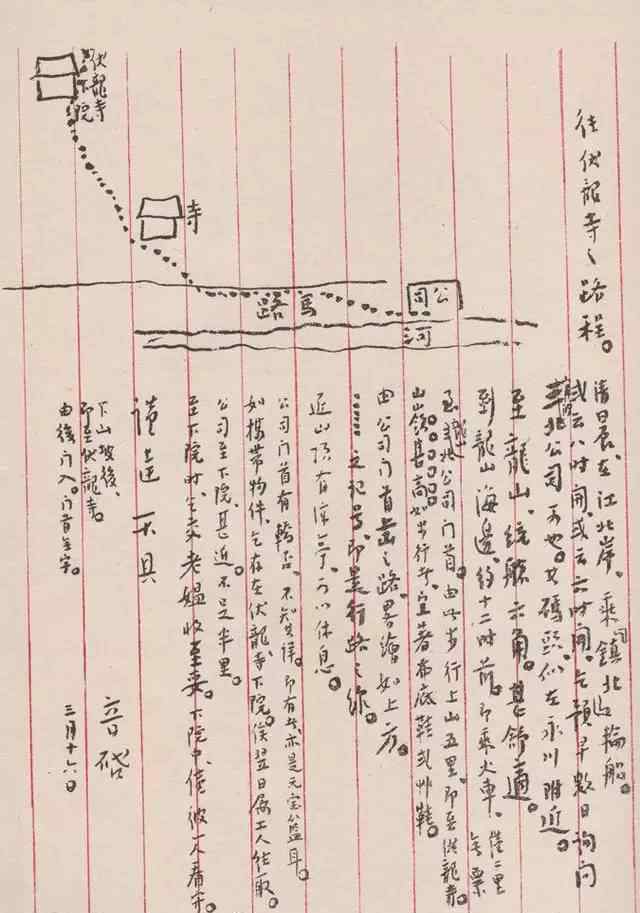 往伏龍寺之路程。
清日晨、在江北岸、乘鎮北公司輪船。
或云八時開、或云六時開、乞預早數日詢問
公司可也。其碼頭、似在永川附近。
至龍山、統艙六角。甚舒適。
到龍山海邊、約十二時前。即乘火車、僅二里
無票
至公司門首。由此步行上山五里、即至伏龍寺。
山嶺甚高、如步行、宜著布底鞋或草鞋。
由公司門首上山之路、畧繪如上方。
之記号、即是行路之線。
近山頂有涼亭、可以休息。
公司門首有轎否、不知其詳。即有者、亦是元宝籃耳。
如攜帶物件、乞存在伏龍寺下院。俟翌日属工人往取。
公司至下院、甚近、不足半里。
至下院時、乞交老嫗收至要。下院中、僅彼一人看守。
謹達不具
下山坡後、
即至伏龍寺。
由後門入。門首無字。
音啓
三月十六日
伏龍寺
下院
寺
馬路
公司
河